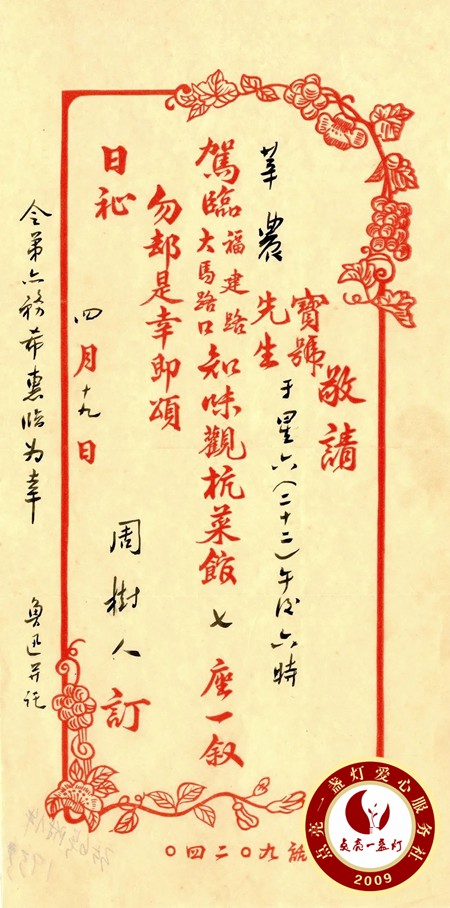 敬請
寶號
莘農 先生
于星六(二十二)午後六時
駕臨 福建路
大馬路口 知味觀杭菜館 七 座一叙
勿却是幸即頌
日祉
四月十九日
周樹人 訂
令弟亦務希惠臨為幸 魯迅並託
話九〇二四〇
点亮一盏灯爱心服务社
点亮一盏灯
2009